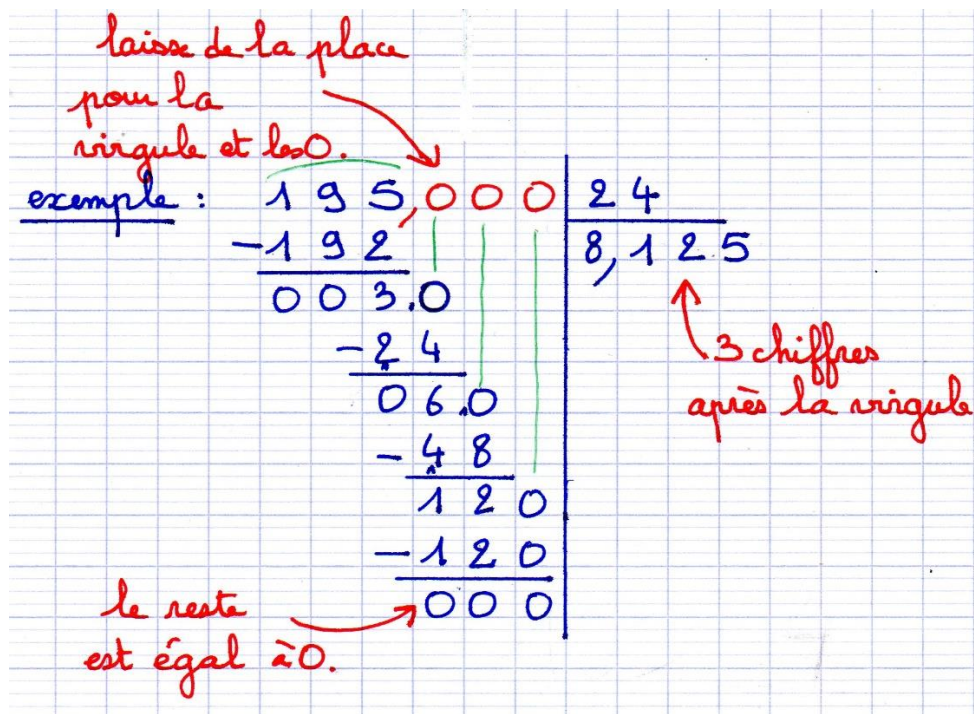 laisse de la place
pour la
virgule et les 0.
exemple : 195,000 24
-192 8,125
003.0
-24
06.0
3 chiffres
après la virgule
-48
120
-120
000
le reste
est égal à 0.